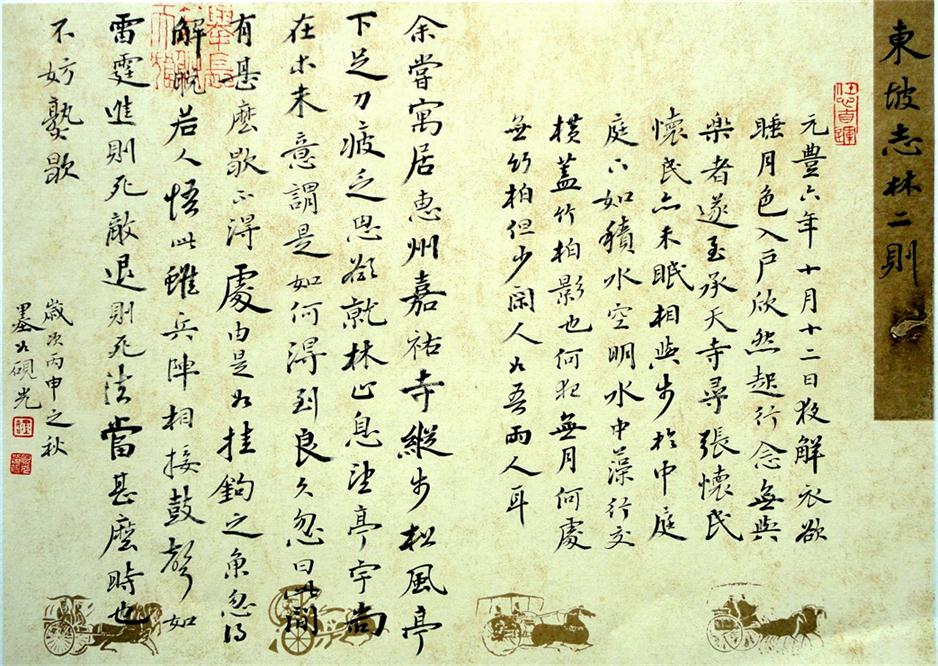 東坡志林二則
元豐六年十月十二日夜解衣欲
睡月色入戶欣然起行念無與
樂者遂至承天寺尋張懷民
懷民亦未眠相與步於中庭
庭下如積水空明水中藻荇交
橫蓋竹柏影也何夜無月何處
無竹柏但少閑人如吾兩人耳
余嘗寓居惠州嘉祐寺縱步松風亭
下足力疲乏思欲就林止息望亭宇尚
在木末意謂是如何得到良久忽曰此間
有甚麼歇不得處由是如挂鉤之魚忽得
解脫若人悟此雖兵陣相接鼓聲如
雷霆進則死敵退則死法當甚麼時也
不妨熟歇
歲次丙申之秋
硯光